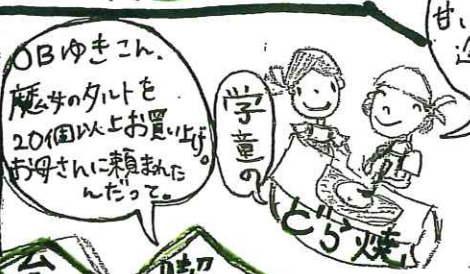 OBゆきこん、
魔女のタルトを
20個以上お買い上げ。
お母さんに頼まれた
んだって。
学童の
どら焼
甘い